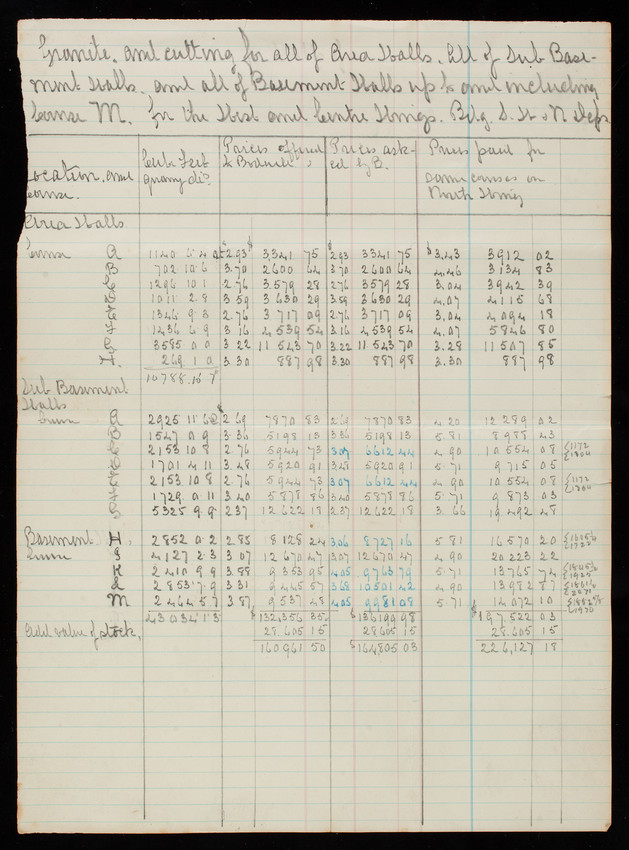 Granite. and cutting for all of Area Walls. All of Sub Base-
ment Walls. and all of Basement Walls up to and including
Course M. for the West and Centre Wings. Bdg. S. W & N Depts
Location. and Course. Cube Feet Prices offered Prices ask- Prices paid for
to Bodwell ed by B. same courses on
North Wing
Area Walls
Course A 1140 2.93 3341 75 2.93 3341 75 $3.43 3912 02
B 702 10 6 3.70 2600 64 3.70 2600 64 4.46 3134 83
C 1296 10 1 2.76 3579 28 2.76 3579 28 3.04 3942 39
D 1011 2 8 3.59 3630 29 3.59 3630 29 4.07 4115 68
E 1346 9 3 2.76 3717 09 2.76 3717 09 3.04 4094 18
F 1436 6 9 3.16 4539 54 3.16 4539 54 4.07 5846 80
G 3585 0 0 3.22 11543 70 3.22 11543 70 3.28 11507 85
H. 269 1 0 3.30 887 98 3.30 887 98 3.30 887 98
10788.16 7
Sub Basement
Walls
Course A 2925 11 6 2.69 7870 83 2.69 7870 83 4.20 12289 02
B 1547 0 9 3.36 5198 13 3.36 5198 13 5.81 8988 43
C 2153 10 8 2.76 5944 73 3.07 6612 44 4.90 10554 08 1172
1304
D 1701 4 11 3.48 5920 91 3.48 5920 91 5.71 9715 05
E 2153 10 8 2.76 5944 73 3.07 6612 44 4.90 10554 08 1172
1304
F 1729 0 11 3.40 5878 86 3.40 5878 86 5.71 9873 03
G 5325 9 9 2.37 12622 18 2.37 12622 18 3.66 19492 48
Basement H. 2852 0 2 2.85 8128 24 3.06 8727 16 5.81 16570 20
Course I 4127 2 3 3.07 12670 47 3.07 12670 47 4.90 20223 22
K 2410 9 9 3.88 9353 95 4.05 9763 79 5.71 13765 74
L 2853 7 9 3.31 9445 57 3.68 10501 42 4.90 13982 87
M 2464 5 7 3.87 9537 48 4.05 9981 08 5.71 14072 10
43034 1 3 $132,356 35 $136199 98 $197,522 03
Add value of stock. 28605 15 28605 15 28.605 15
160961 50 $164805 03 226,127 18